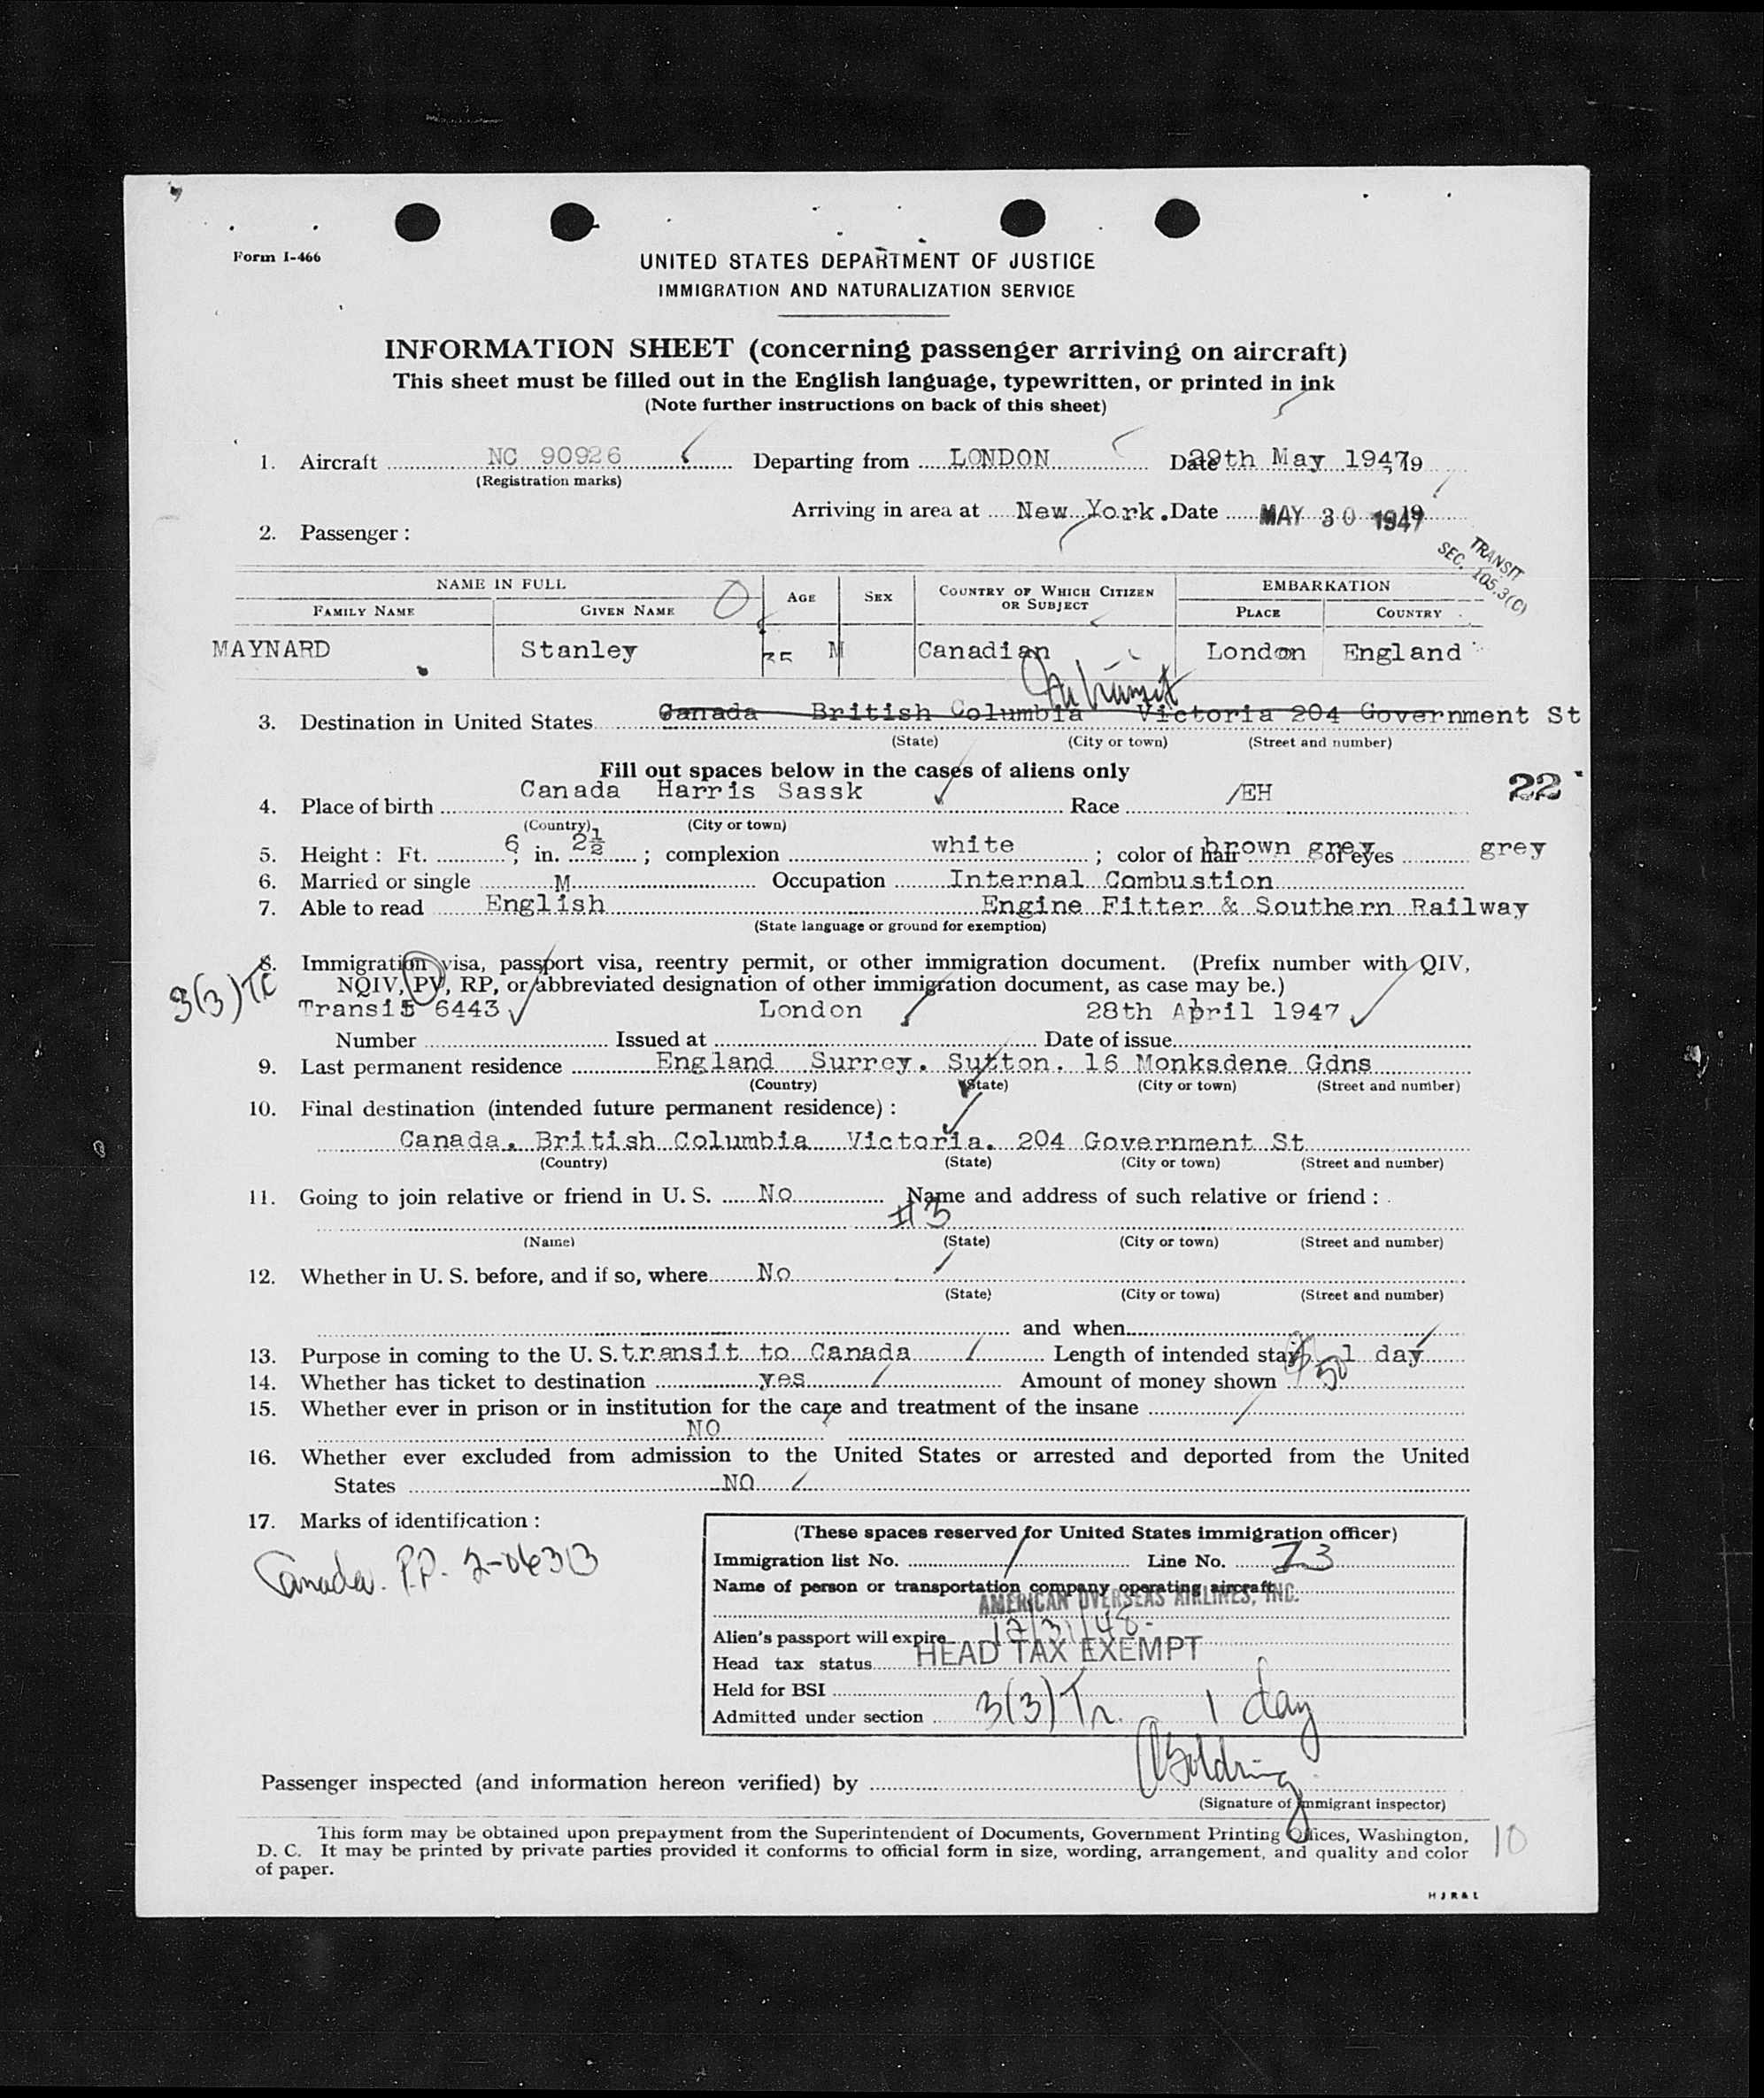 Form I-466
UNITED STATES DEPARTMENT OF JUSTICE
IMMIGRATION AND NATURALIZATION SERVICE
INFORMATION SHEET (concerning passenger arriving on aircraft)
This sheet must be filled out in the English language, typewritten, or printed in ink
(Note further instructions on back of this sheet)
1. Aircraft NC 90926 Departing from LONDON Date 29th May 1947, 19
(Registration marks)
Arriving in area at New York. Date MAY 30 1947, 19
2. Passenger:
TRANSIT
SEC. 105.3(C)
NAME IN FULL AGE SEX COUNTRY OF WHICH CITIZEN OR SUBJECT EMBARKATION
FAMILY NAME GIVEN NAME PLACE COUNTRY
MAYNARD Stanley 35 M Canadian London England
In transit
3. Destination in United States Canada British Columbia Victoria 204 Government St
(State) (City or town) (Street and number)
Fill out spaces below in the cases of aliens only
22
4. Place of birth Canada Harris Sassk Race /EH
(Country) (City or town)
5. Height: Ft. 6, in. 2½; complexion white; color of hair brown grey of eyes grey
6. Married or single M Occupation Internal Combustion
7. Able to read English Engine Fitter & Southern Railway
(State language or ground for exemption)
8. Immigration visa, passport visa, reentry permit, or other immigration document. (Prefix number with QIV,
3(3)Tr NQIV, PV, RP, or abbreviated designation of other immigration document, as case may be.)
Transit 6443 London 28th April 1947
Number Issued at Date of issue
9. Last permanent residence England Surrey. Sutton. 16 Monksdene Gdns
(Country) (State) (City or town) (Street and number)
10. Final destination (intended future permanent residence):
Canada. British Columbia Victoria. 204 Government St
(Country) (State) (City or town) (Street and number)
11. Going to join relative or friend in U. S. No Name and address of such relative or friend:
#3
(Name) (State) (City or town) (Street and number)
12. Whether in U. S. before, and if so, where No
(State) (City or town) (Street and number)
and when
13. Purpose in coming to the U. S. transit to Canada Length of intended stay 1 day
14. Whether has ticket to destination yes Amount of money shown 50
15. Whether ever in prison or in institution for the care and treatment of the insane
NO
16. Whether ever excluded from admission to the United States or arrested and deported from the United
States NO
17. Marks of identification:
Canada. P.P. 2-06313
(These spaces reserved for United States immigration officer)
Immigration list No. 1 Line No. 23
Name of person or transportation company operating aircraft
AMERICAN OVERSEAS AIRLINES, INC.
Alien's passport will expire 12/31/48
Head tax status HEAD TAX EXEMPT
Held for BSI
Admitted under section 3(3)Tr. 1 day
Passenger inspected (and information hereon verified) by
(Signature of immigrant inspector)
This form may be obtained upon prepayment from the Superintendent of Documents, Government Printing Offices, Washington,
D. C. It may be printed by private parties provided it conforms to official form in size, wording, arrangement, and quality and color
of paper.
10
HJR&L